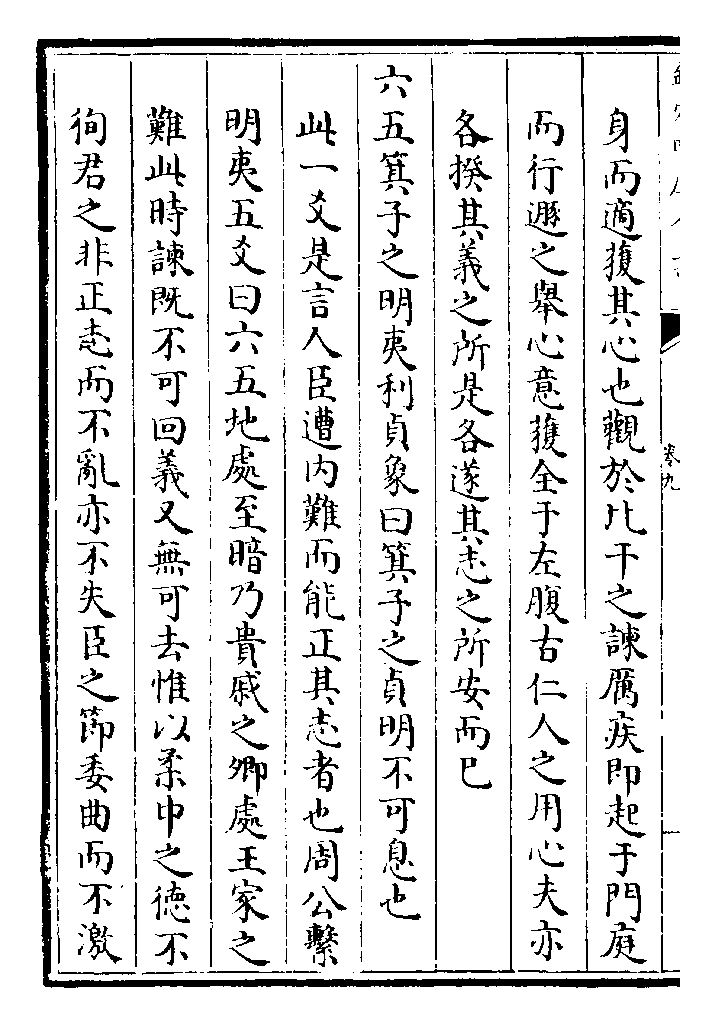 身而適獲其心也觀於比干之諫厲疾即起于門庭
而行遯之舉心意獲全于左腹古仁人之用心夫亦
各揆其義之所是各遂其志之所安而已
六五箕子之明夷利貞象曰箕子之貞明不可息也
此一爻是言人臣遭内難而能正其志者也周公繫
明夷五爻曰六五地處至暗乃貴戚之卿處王家之
難此時諫既不可回義又無可去惟以柔中之徳不
徇君之非正志而不亂亦不失臣之節委曲而不激
卷九